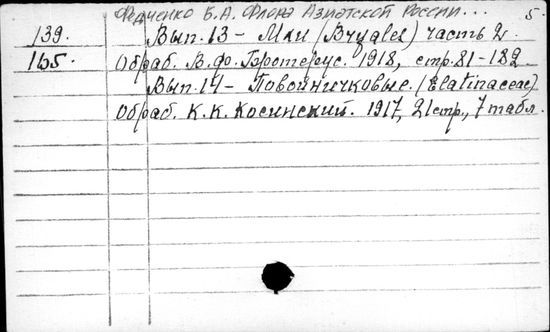 Федченко Б.А. Флора Азиатской России... 5.
139. Вып. 13 - Мхи (Bryales) часть 2.
165. Обраб. В.Ф. Бротерус. 1918, стр. 81-182
Вып. 14 - Повойничковые. (Elatinaceae)
Обраб. К.К. Косинский. 1917, 21 стр., 7 табл.